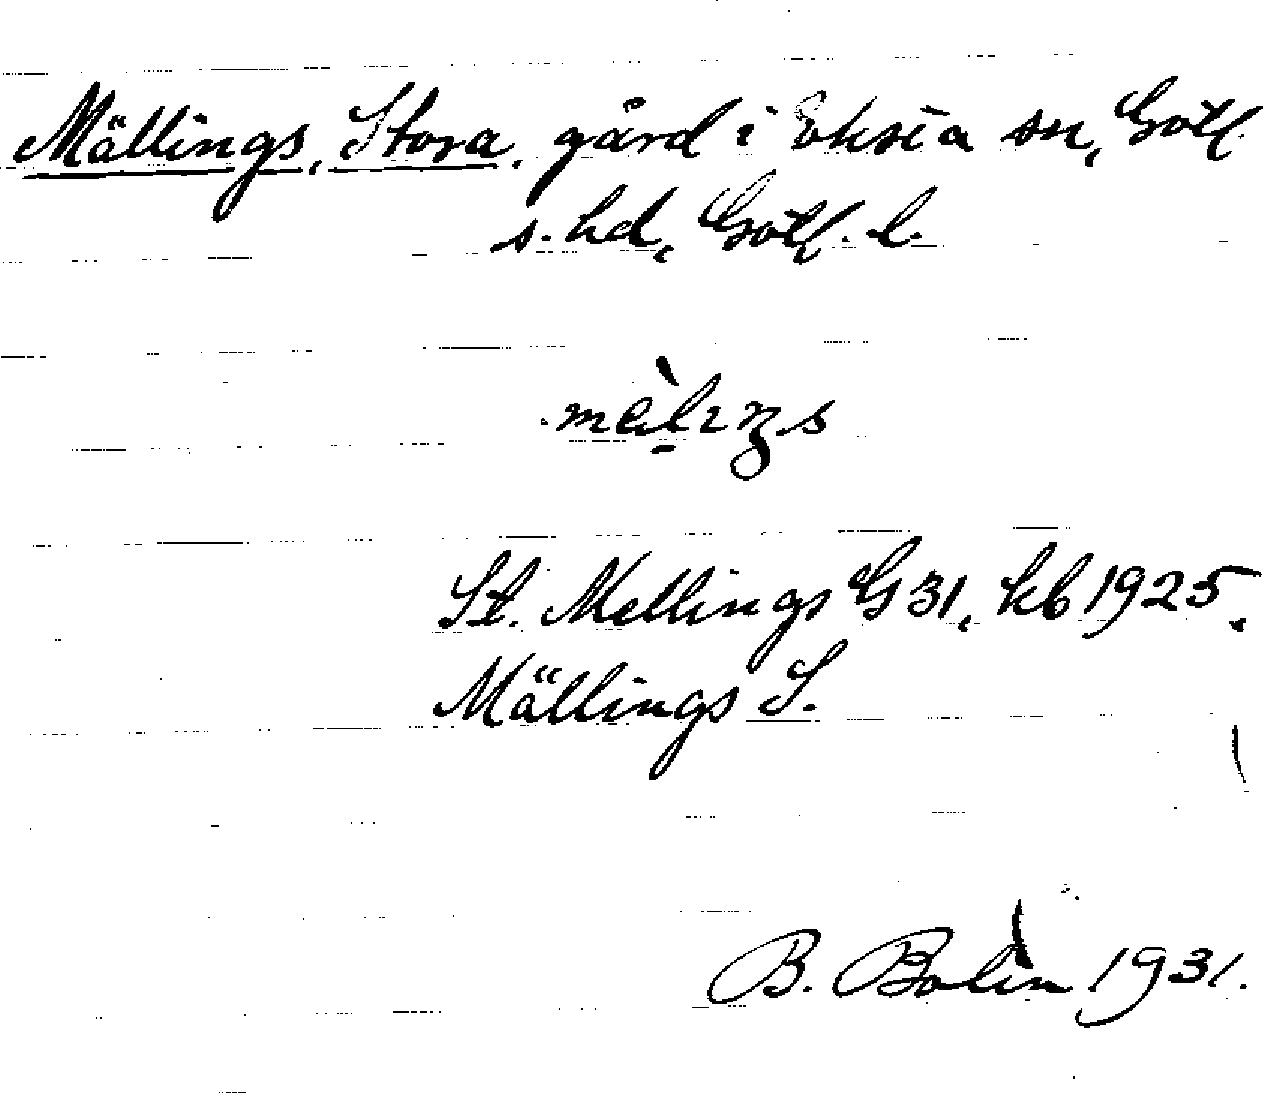 Mällings, Stora, gård i Eksta sn, Gotl.
s. hd, Gotl. l.
St. Mellings G 31, kb 1925.
Mällings S.
B. Bolin 1931.